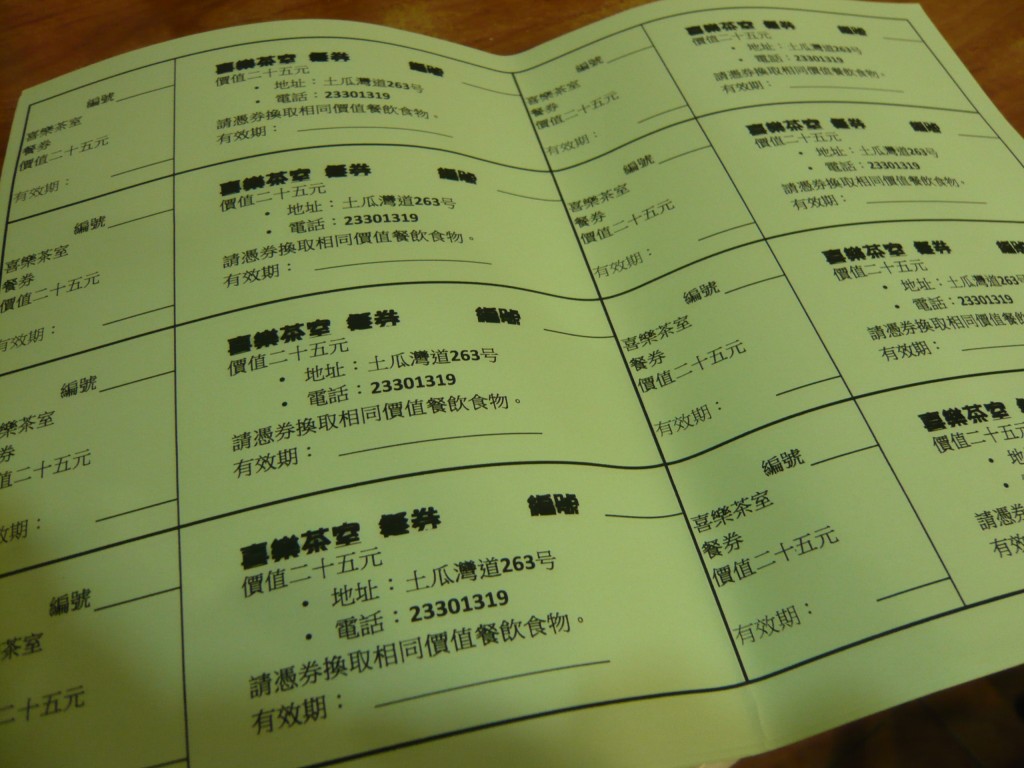 編號
喜樂茶室
餐券
價值二十五元
有效期：
喜樂茶室 餐券 編號
價值二十五元
• 地址：土瓜灣道263号
• 電話：23301319
請憑券換取相同價值餐飲食物。
有效期：
編號
喜樂茶室
餐券
價值二十五元
有效期：
喜樂茶室 餐券 編號
價值二十五元
• 地址：土瓜灣道263号
• 電話：23301319
請憑券換取相同價值餐飲食物。
有效期：
編號
喜樂茶室
餐券
價值二十五元
有效期：
喜樂茶室 餐券 編號
價值二十五元
• 地址：土瓜灣道263号
• 電話：23301319
請憑券換取相同價值餐飲食物。
有效期：
編號
喜樂茶室
餐券
價值二十五元
有效期：
喜樂茶室 餐券 編號
價值二十五元
• 地址：土瓜灣道263号
• 電話：23301319
請憑券換取相同價值餐飲食物。
有效期：
編號
樂茶室
券
值二十五元
效期：
喜樂茶室 餐券 編號
價值二十五元
• 地址：土瓜灣道263号
• 電話：23301319
請憑券換取相同價值餐飲食物。
有效期：
編號
喜樂茶室
餐券
價值二十五元
有效期：
喜樂茶室 餐券 編號
價值二十五元
• 地址：土瓜灣道263
• 電話：23301319
請憑券換取相同價值餐飲
有效期：
編號
茶室
二十五元
喜樂茶室 餐券 編號
價值二十五元
• 地址：土瓜灣道263号
• 電話：23301319
請憑券換取相同價值餐飲食物。
有效期：
編號
喜樂茶室
餐券
價值二十五元
有效期：
喜樂茶室
價值二十五元
• 地
請憑券
有效